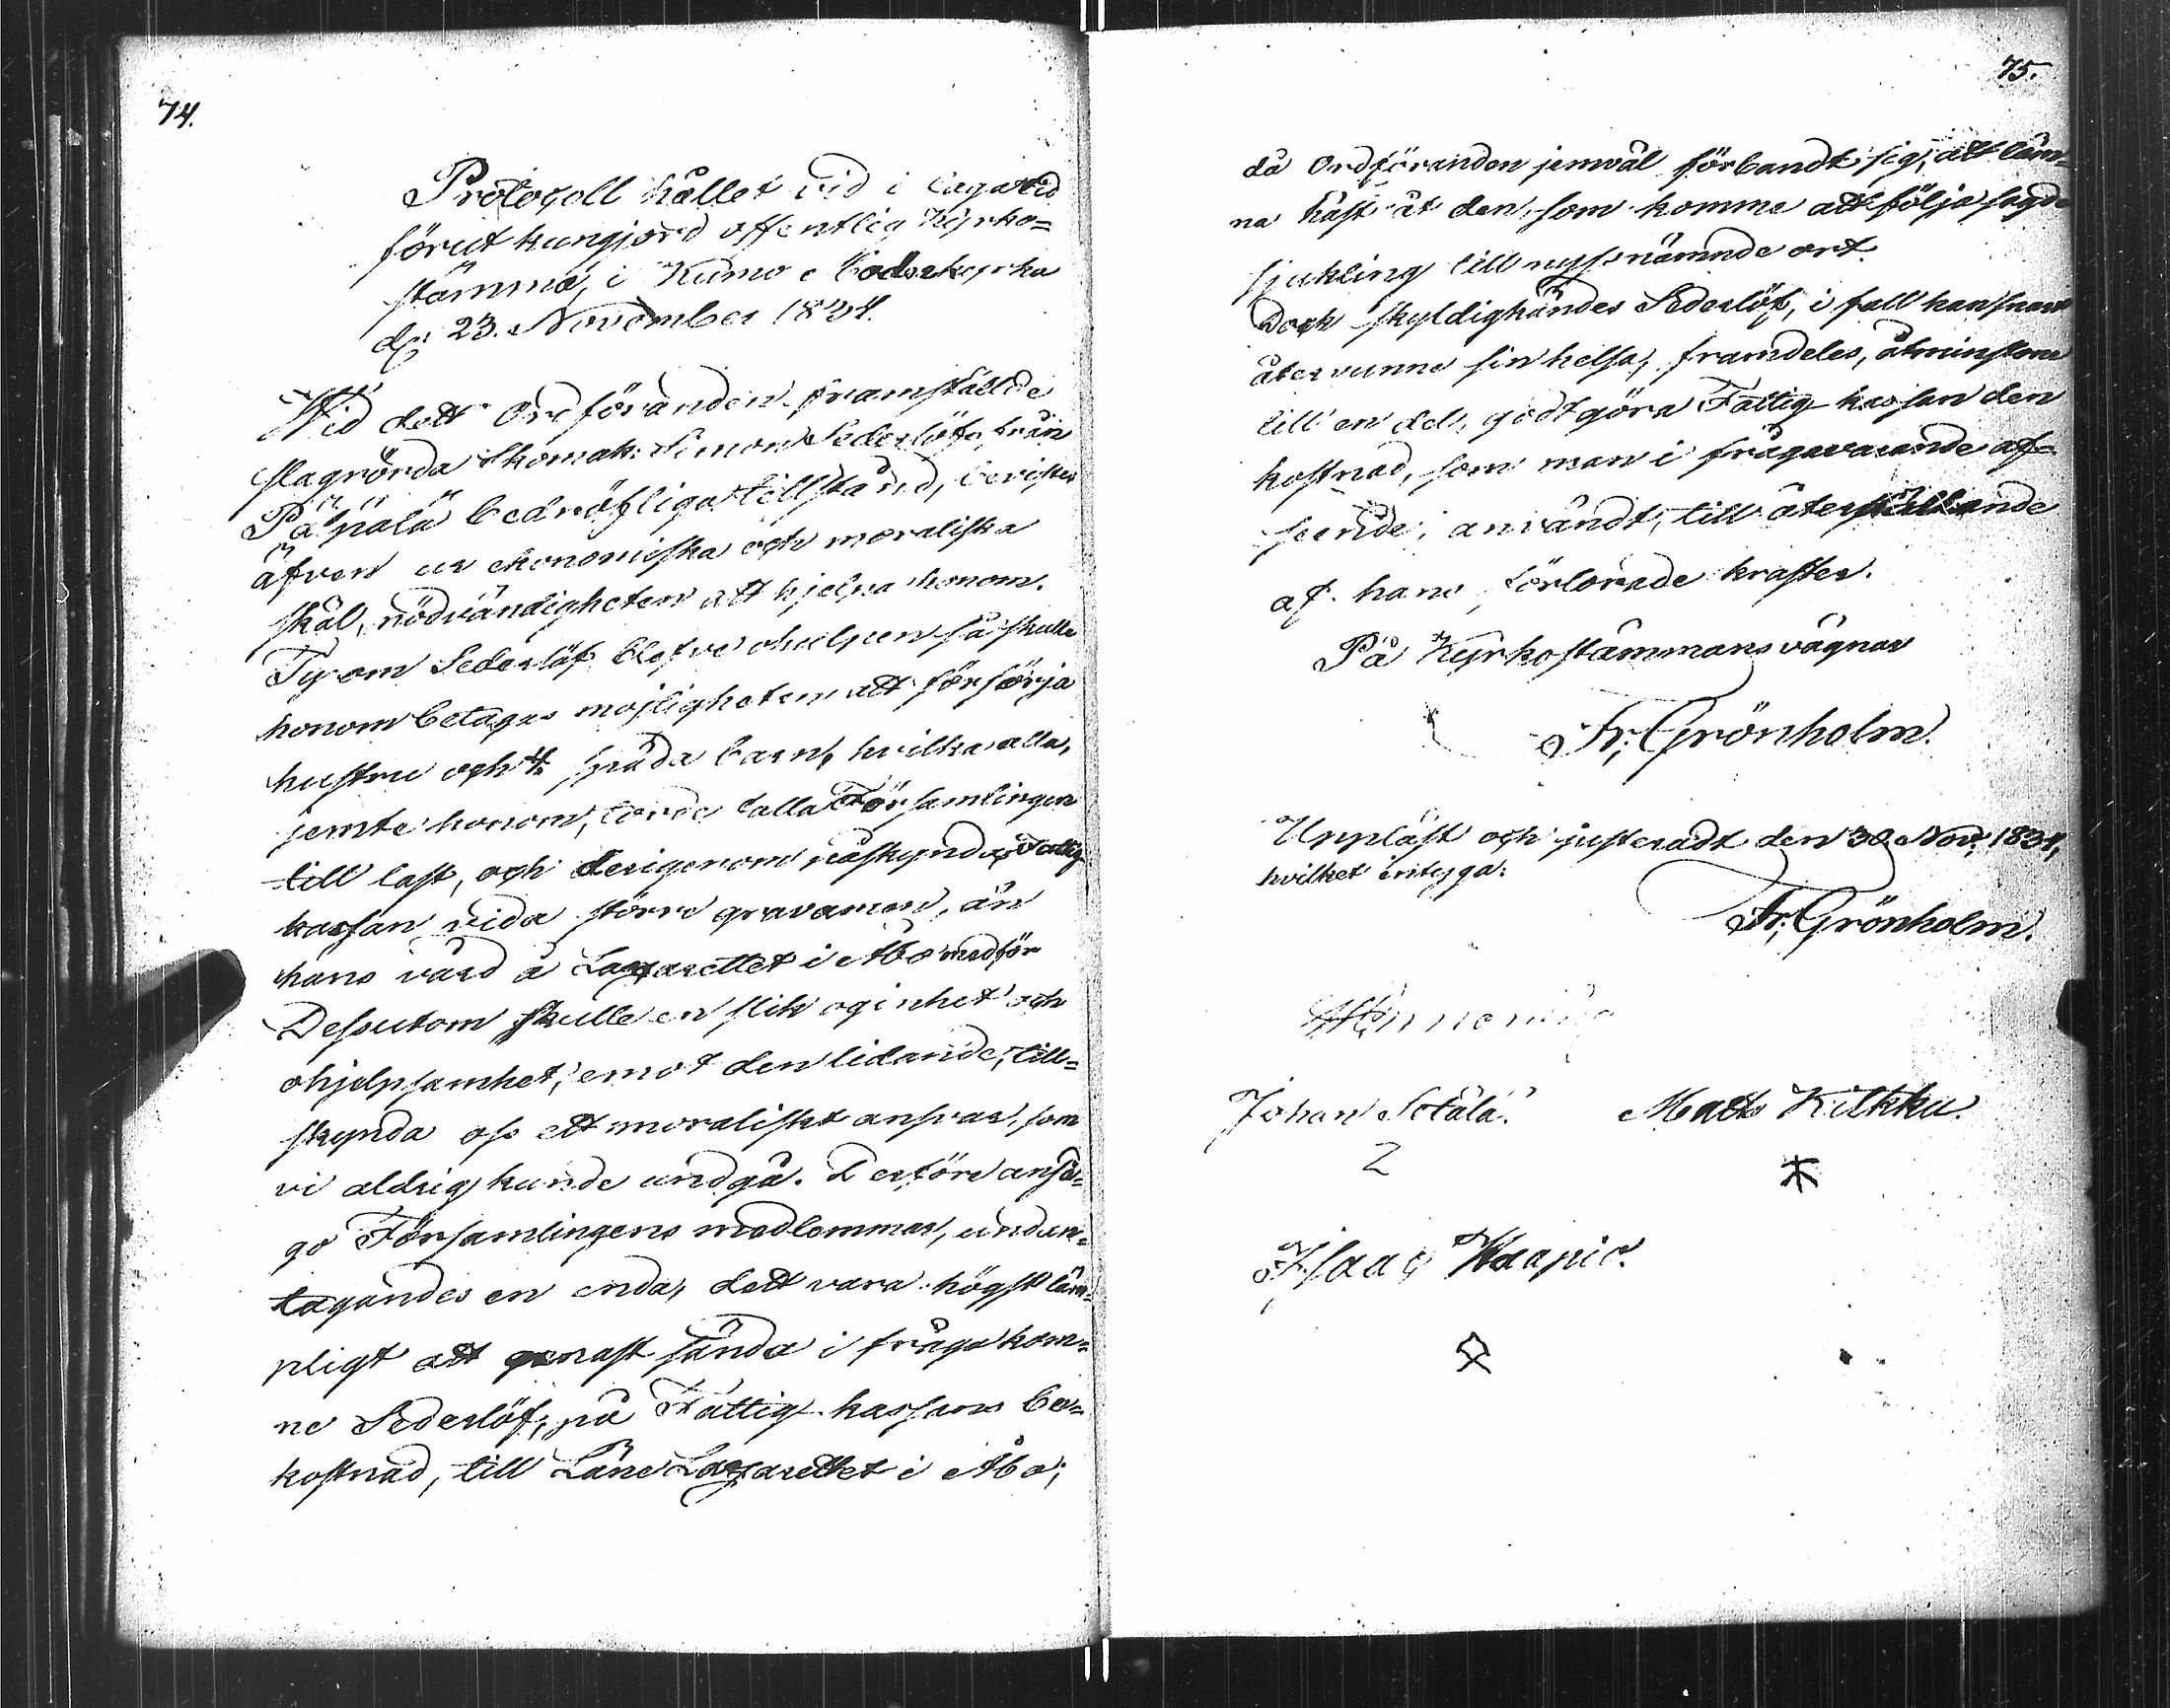 74.
Protocoll hållet vid i laga tid
förut kungjord offentlig Kyrko=
stämma, i Kumo Moderkyrka
d: 23. November 1834.
Wid dett Ordföranden framställde
slagrörda Skomak: Simon Sederlöfs, från
Pänälä bedröfliga tillstånd,
äfven ur ekonomiska och moraliska
skäl, nödvändigheten att hjelpa honom.
Ty om Sederlöf blefve ohulpen så skulle
honom betagas möjligheten att försörja
hustru och 4 späda barn, hvilka alla,
jemte honom, torde falla Församlingen
till last, och derigenom påskynda Fattig
kassan vida större gravamen, än
hans vård å Lazarettet i Åbo medför
Dessutom skulle en slik oginhet och
ohjelpsamhet, emot den lidande, till=
skynda oss ett moraliskt ansvar, som
vi aldrig kunde undgå. Derföre anså=
go Församlingens medlemmar, undan=
tagandes en enda, dett vara högst läm=
pligt att genast sända i fråga kom=
ne Sederlöf, på Fattig-kassans be=
kostnad, till Läns Lazarettet i Åbo;
75.
då Ordföranden jemväl förbandt sig, att läm=
na häst åt den, som komme att följa sagde
sjukling till nyssnämnde ort.
Dock skyldigkändes Sederlöf, i fall han snart
återvunne sin helsa, framdeles, åtminstone
till en del, godtgöra Fattig-kassan den
kostnad, som man i frågavarande af=
seende, användt, till återställande
af hans förlorade krafter.
På Kyrkostämmans vägnar
Fr: Grönholm.
Uppläst och justeradt den 30 Nov: 1834,
hvilket intyga:
Fr: Grönholm.
Johan Setälä. Matts Kilkku.
Isaac Kaapie.